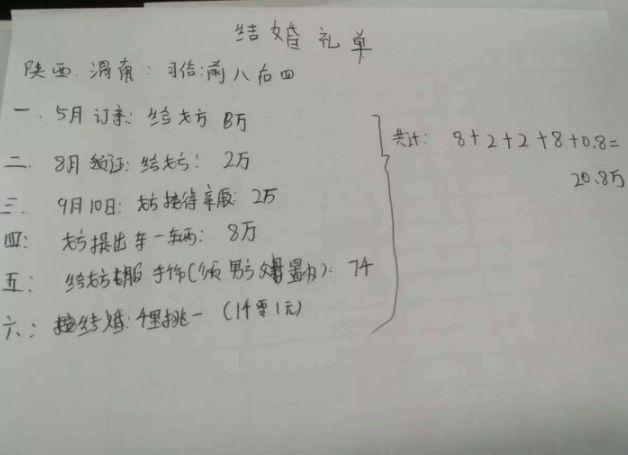 结婚礼单
陕西.渭南:习俗:前八后四
一.5月订亲:给女方8万
二.8月领证:给女方:2万
三.9月10日:女方接待亲戚:2万
四:女方提出车一辆:8万
五:给女方 手饰(须男方 置办):7千
六: 千里挑一(1千零1元)
共计:8+2+2+8+0.8=
20.8万